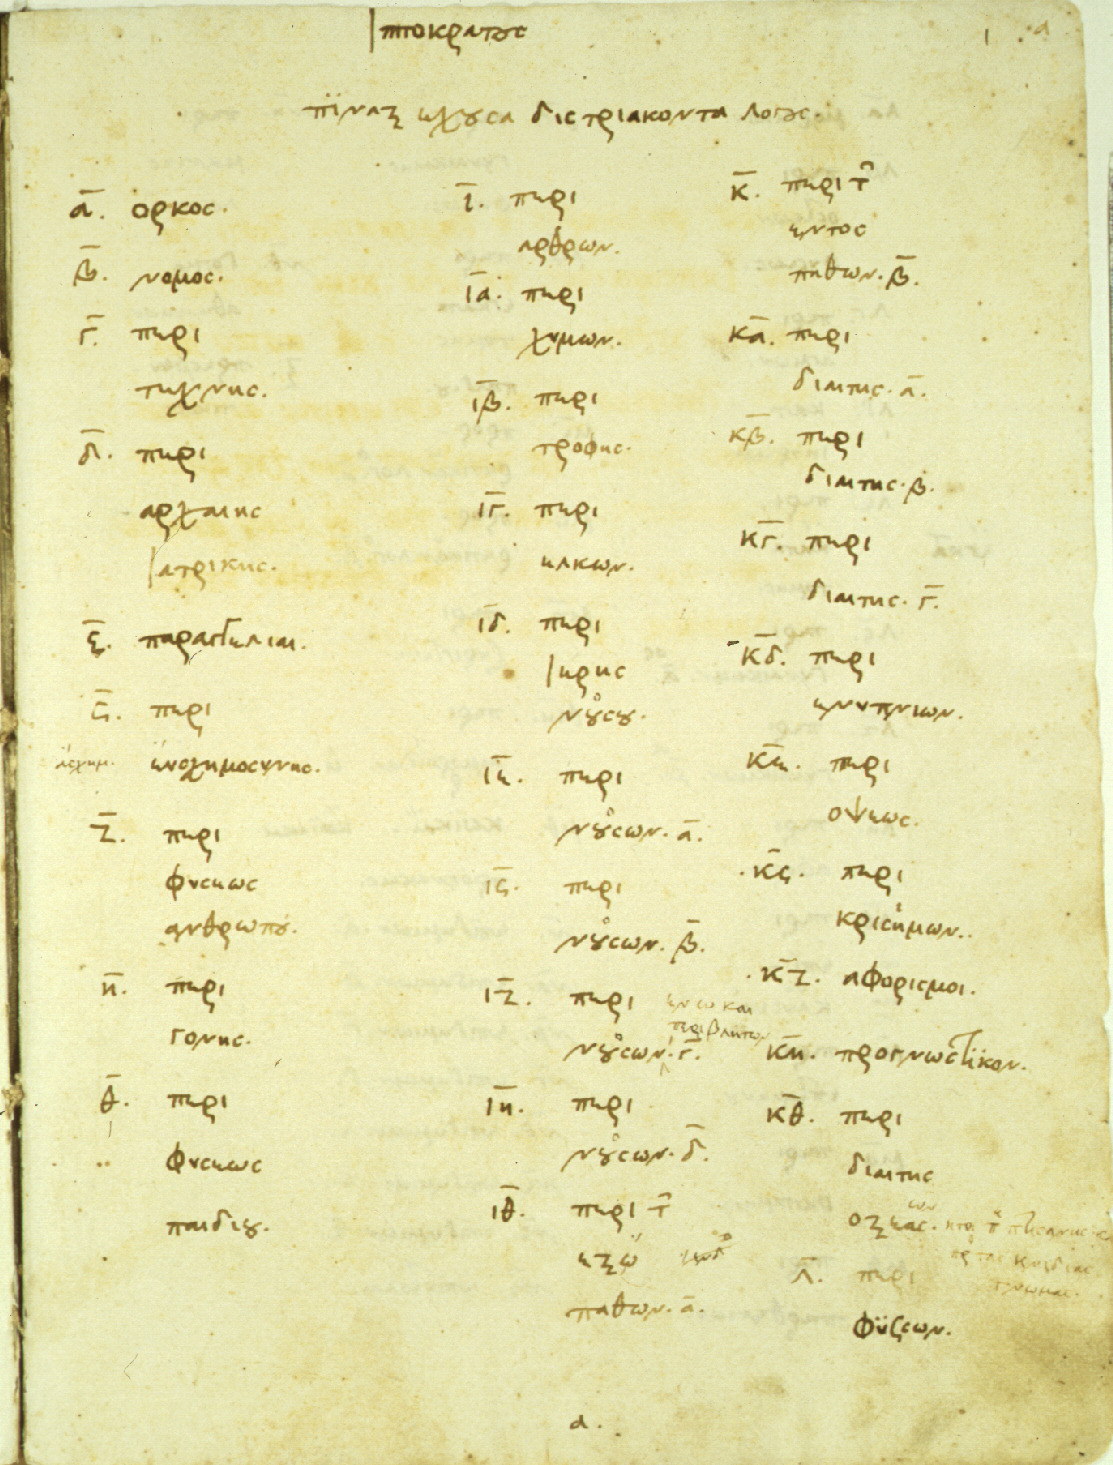 ἱπποκρατους
πϊναξ εχουσα δις τριακοντα λογους.
α. ορκος.
β. νομος.
γ. περι
τεχνης.
δ. περι
αρχαιης
ιατρικης.
ε. παραγγελιαι.
ϛ. περι
ευσχημοσυνης.
ζ. περι
φυσεως
ανθρωπου.
η. περι
γονης.
θ. περι
φυσεως
παιδιου.
ι. περι
αρθρων.
ια. περι
χυμων.
ιβ. περι
τροφης.
ιγ. περι
ελκων.
ιδ. περι
ιερης
νουσου.
ιε. περι
νουσων. α.
ιϛ. περι
νουσων. β.
ιζ. περι
νουσων. γ.
ιη. περι
νουσων. δ.
ιθ. περι τ
εξω
παθων. α.
κ. περι τ
εντος
παθων. β.
κα. περι
διαιτης. α.
κβ. περι
διαιτης. β.
κγ. περι
διαιτης. γ.
κδ. περι
ενυπνιων.
κε. περι
οψεως.
κϛ. περι
κρισημων.
κζ. αφορισμοι.
κη. προγνωστϊκον.
κθ. περι
διαιτης
οξεας.
λ. περι
φϋσων.
α.